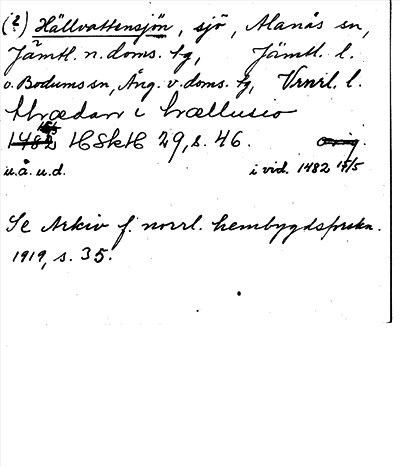 (?) Hällvattensjön, sjö, Alanäs sn,
Jämtl. n. doms. tg, Jämtl. l.
o. Bodums sn, Ång. v. doms. tg, Vrnrl. l.
thrædær i hrællusio
1482 15/5 HSkH 29, s. 46. orig.
u.å. u.d. i vid. 1482 15/5
Se Arkiv f. norrl. hembygdsforskn.
1919, s. 35.